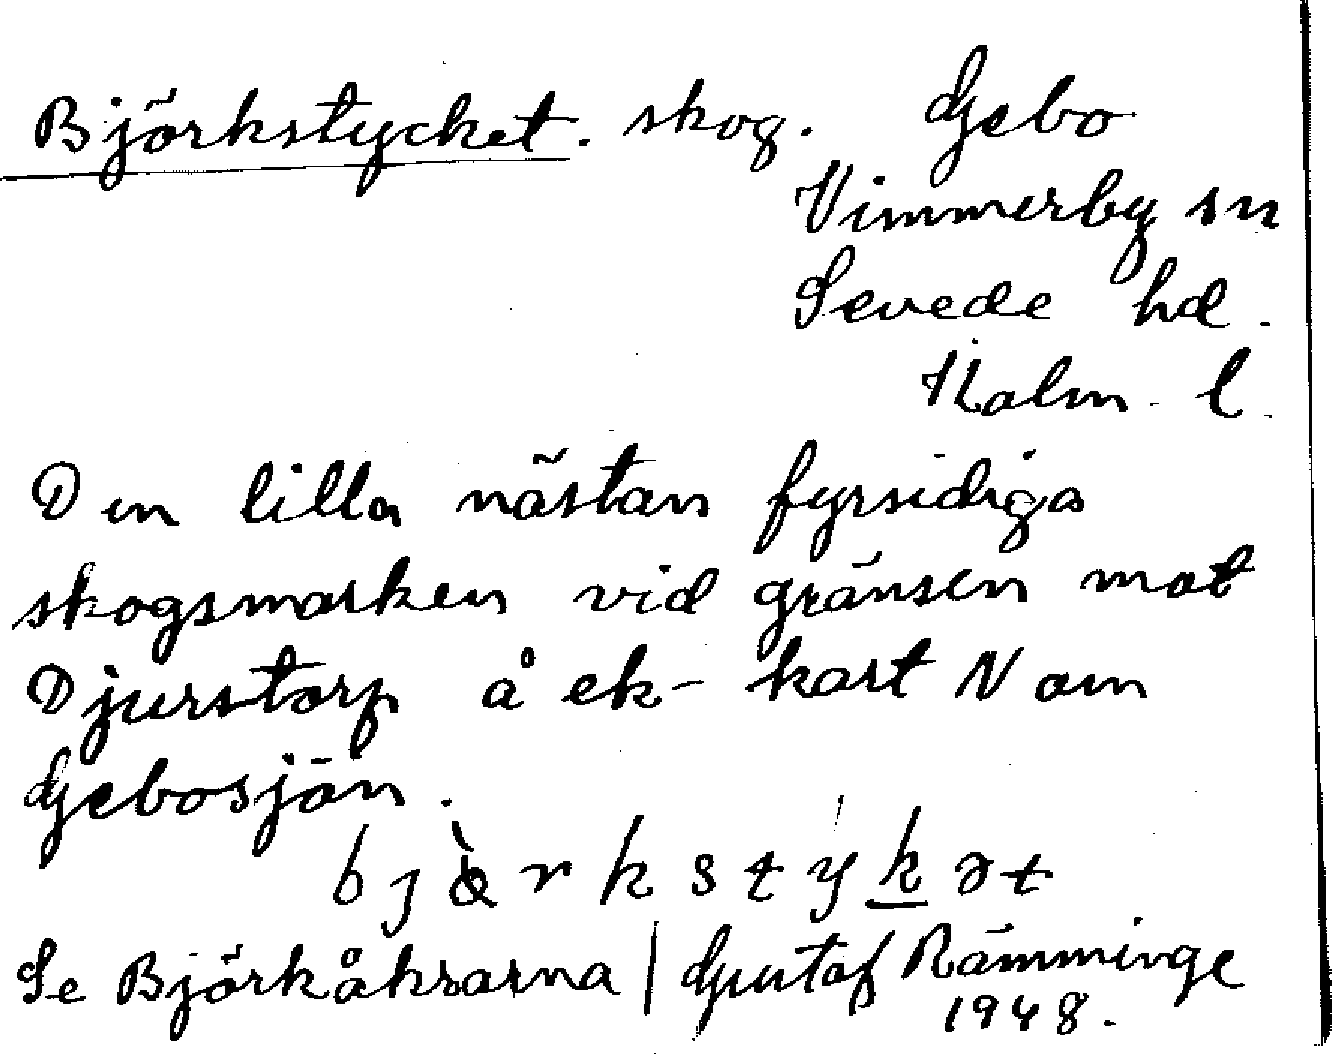 Björkstycket. skog. Gebo
Vimmerby sn
Sevede hd.
Kalm. l.
Den lilla nästan fyrsidiga
skogsmarken vid gränsen mot
Djurstorp å ek-kart N om
Gebosjön.
Se Björkåkrarna / Gustaf Rämminge
1948.